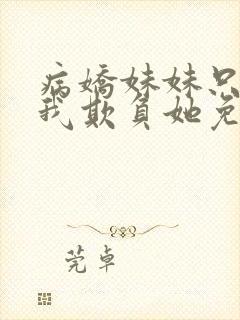 病嬌妹妹只
我欺負她免
莞卓